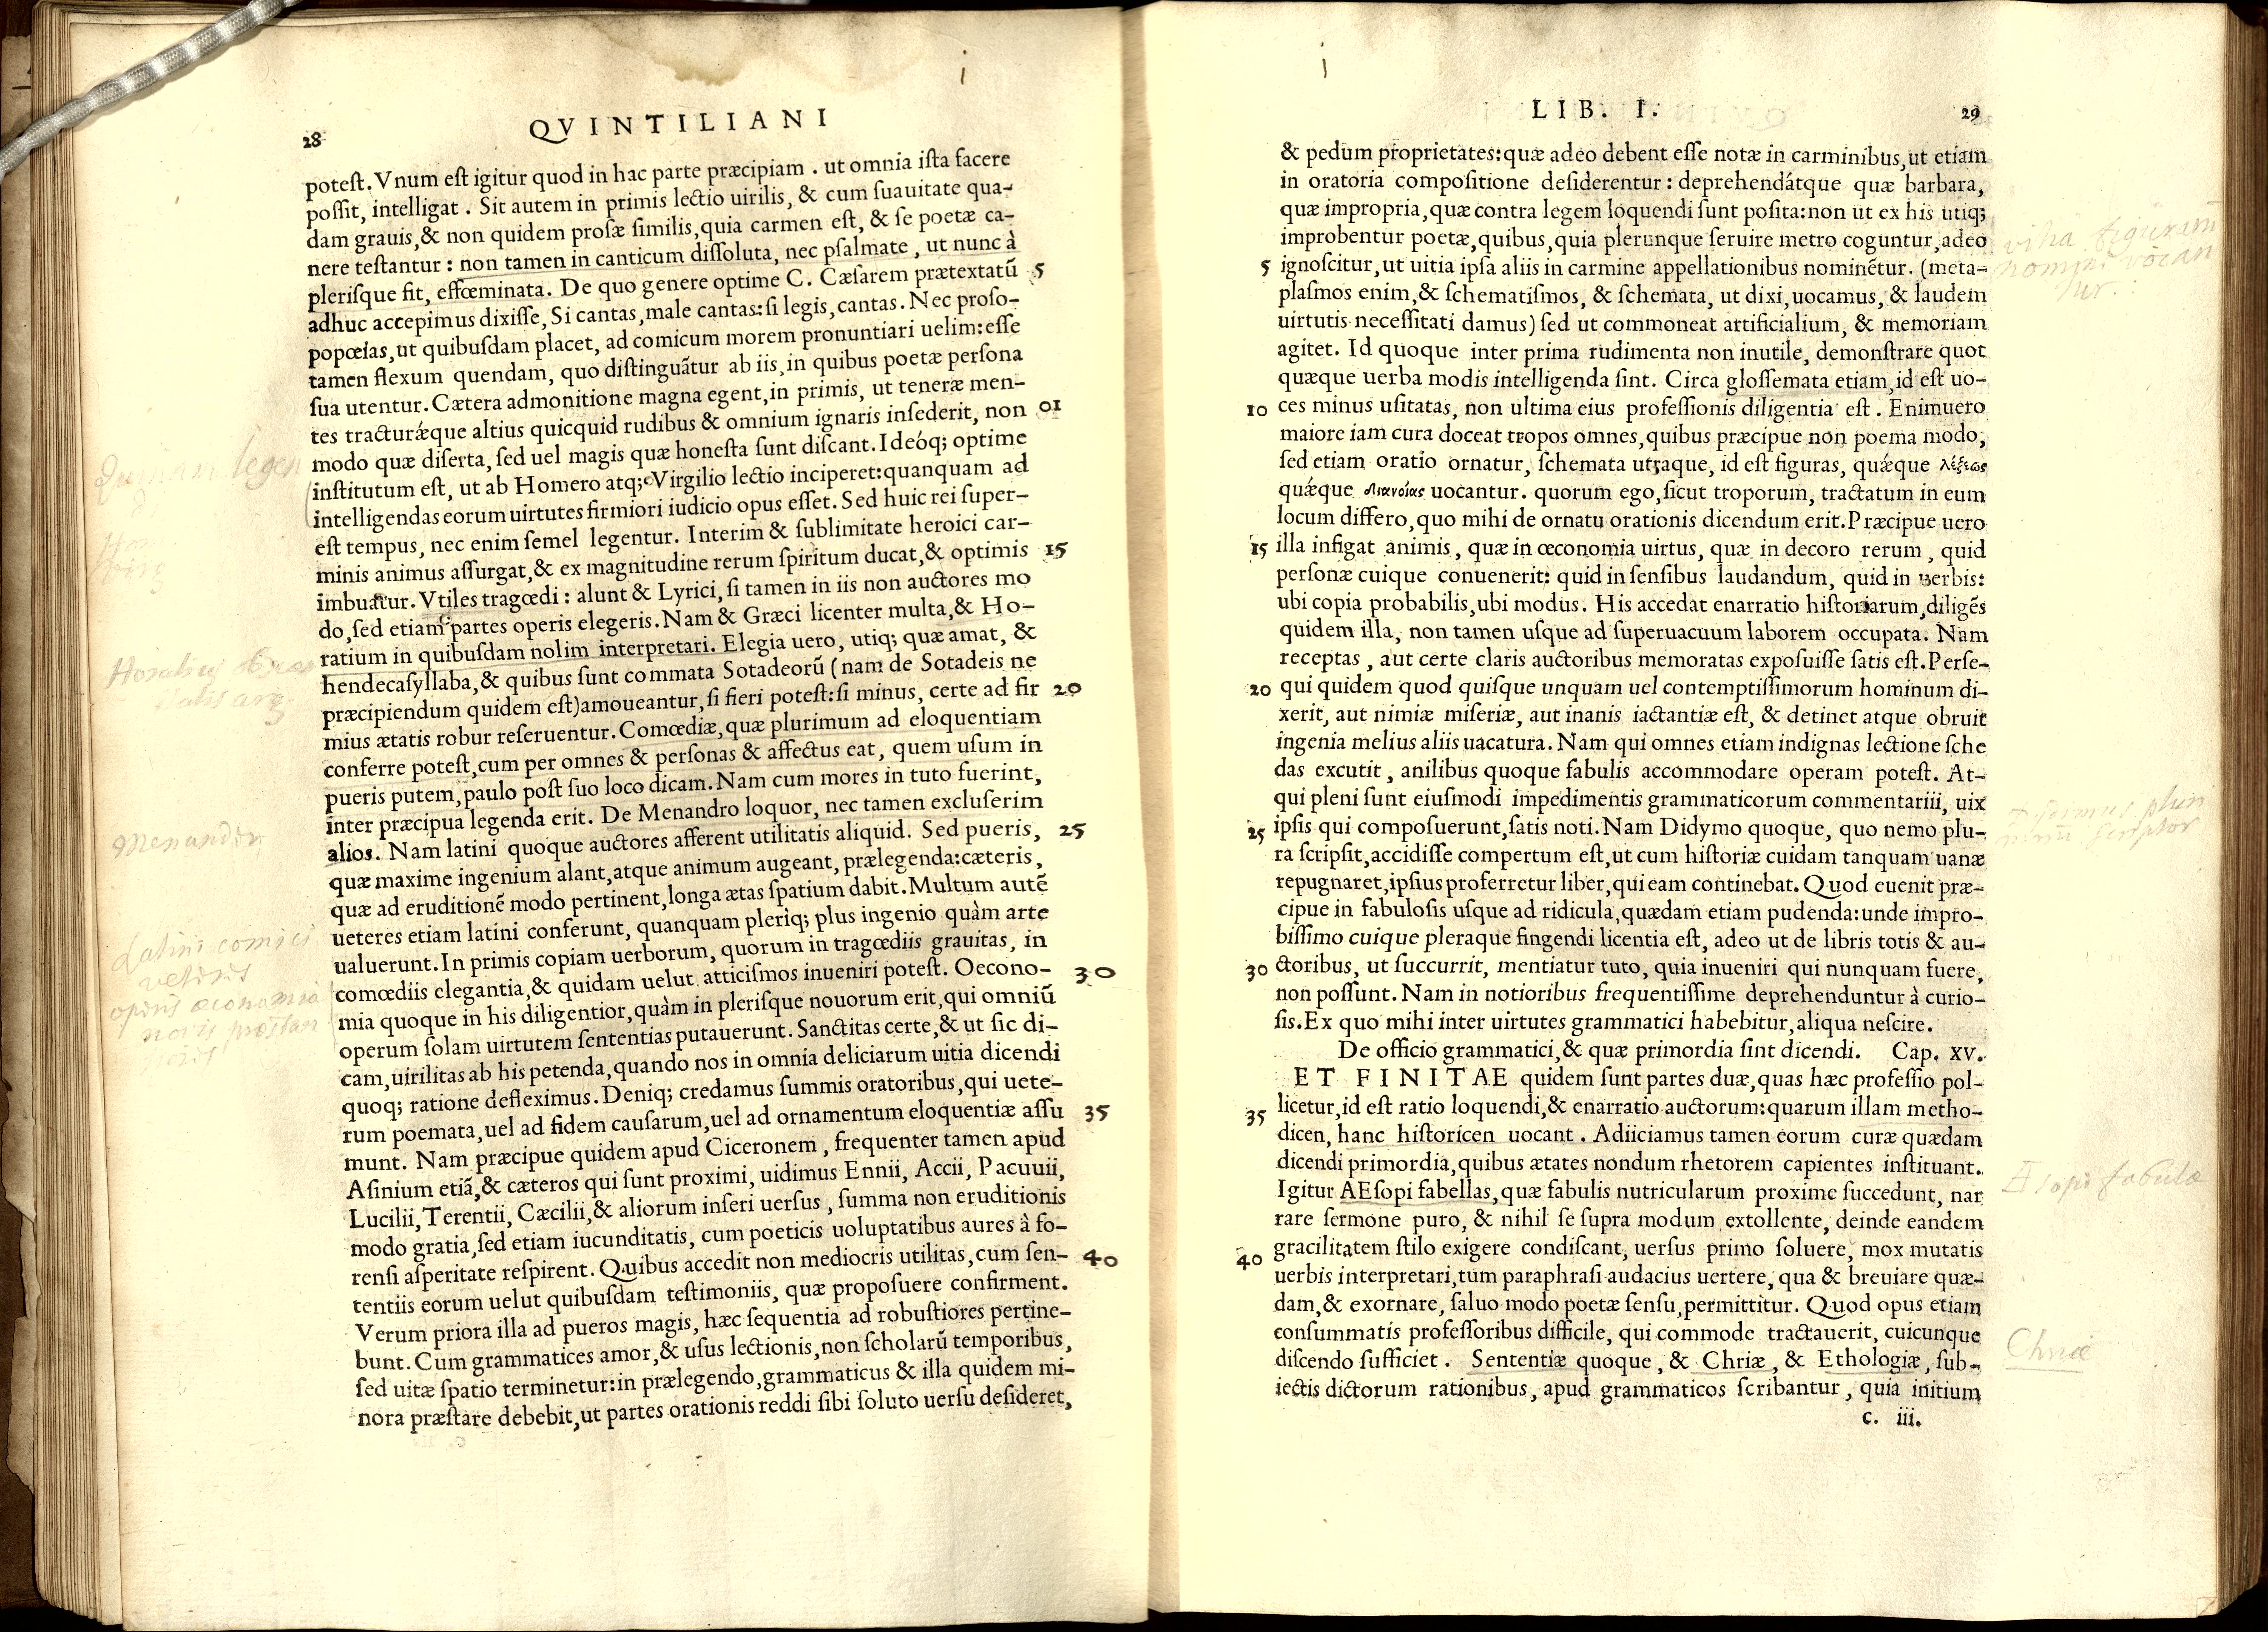 28
QVINTILIANI
poteſt. Vnum eſt igitur quod in hac parte præcipiam . ut omnia iſta facere
poſſit, intelligat . Sit autem in primis lectio uirilis, & cum ſuauitate qua-
dam grauis, & non quidem proſæ ſimilis, quia carmen eſt, & ſe poetæ ca-
nere teſtantur : non tamen in canticum diſſoluta, nec pſalmate , ut nunc à
plerisque fit, effœminata. De quo genere optime C. Cæſarem prætextatū 5
adhuc accepimus dixiſſe, Si cantas, male cantas: ſi legis, cantas. Nec proſo-
popœias, ut quibuſdam placet, ad comicum morem pronuntiari uelim: eſſe
tamen flexum quendam, quo diſtinguãtur ab iis, in quibus poetæ perſona
ſua utentur. Cætera admonitione magna egent, in primis, ut teneræ men-
tes tracturǽque altius quicquid rudibus & omnium ignaris inſederit, non 01
modo quæ diſerta, ſed uel magis quæ honeſta ſunt diſcant. Ideóq; optime
inſtitutum eſt, ut ab Homero atq; Virgilio lectio inciperet: quanquam ad
intelligendas eorum uirtutes firmiori iudicio opus eſſet. Sed huic rei ſuper-
eſt tempus, nec enim ſemel legentur. Interim & ſublimitate heroici car-
minis animus aſſurgat, & ex magnitudine rerum ſpiritum ducat, & optimis 15
imbuatur. Vtiles tragœdi : alunt & Lyrici, ſi tamen in iis non auctores mo
do, ſed etiam partes operis elegeris. Nam & Græci licenter multa, & Ho-
ratium in quibuſdam nolim interpretari. Elegia uero, utiq; quæ amat, &
hendecaſyllaba, & quibus ſunt commata Sotadeorũ (nam de Sotadeis ne
præcipiendum quidem eſt) amoueantur, ſi fieri poteſt: ſi minus, certe ad fir 20
mius ætatis robur reſeruentur. Comœdiæ, quæ plurimum ad eloquentiam
conferre poteſt, cum per omnes & perſonas & affectus eat, quem uſum in
pueris putem, paulo poſt ſuo loco dicam. Nam cum mores in tuto fuerint,
inter præcipua legenda erit. De Menandro loquor, nec tamen excluſerim
alios. Nam latini quoque auctores afferent utilitatis aliquid. Sed pueris, 25
quæ maxime ingenium alant, atque animum augeant, prælegenda: cæteris,
quæ ad eruditionẽ modo pertinent, longa ætas ſpatium dabit. Multum autẽ
ueteres etiam latini conferunt, quanquam pleriq; plus ingenio quàm arte
ualuerunt. In primis copiam uerborum, quorum in tragœdiis grauitas, in
comœdiis elegantia, & quidam uelut atticiſmos inueniri poteſt. Oecono- 30
mia quoque in his diligentior, quàm in pleriſque nouorum erit, qui omniũ
operum ſolam uirtutem ſententias putauerunt. Sanctitas certe, & ut ſic di-
cam, uirilitas ab his petenda, quando nos in omnia deliciarum uitia dicendi
quoq; ratione defleximus. Deniq; credamus ſummis oratoribus, qui uete-
rum poemata, uel ad fidem cauſarum, uel ad ornamentum eloquentiæ aſſu 35
munt. Nam præcipue quidem apud Ciceronem , frequenter tamen apud
Aſinium etiã, & cæteros qui ſunt proximi, uidimus Ennii, Accii, Pacuuii,
Lucilii, Terentii, Cæcilii, & aliorum inſeri uerſus , ſumma non eruditionis
modo gratia, ſed etiam iucunditatis, cum poeticis uoluptatibus aures à fo-
renſi aſperitate reſpirent. Quibus accedit non mediocris utilitas, cum ſen- 40
tentiis eorum uelut quibuſdam teſtimoniis, quæ propoſuere confirment.
Verum priora illa ad pueros magis, hæc ſequentia ad robuſtiores pertine-
bunt. Cum grammatices amor, & uſus lectionis, non ſcholarũ temporibus,
ſed uitæ ſpatio terminetur: in prælegendo, grammaticus & illa quidem mi-
nora præſtare debebit, ut partes orationis reddi ſibi ſoluto uerſu deſideret,
legen
Horatius
Menander
Latini comici
veteris
operis œconomia
LIB. I.
29
& pedum proprietates: quæ adeo debent eſſe notæ in carminibus, ut etiam
in oratoria compoſitione deſiderentur : deprehendátque quæ barbara,
quæ impropria, quæ contra legem loquendi ſunt poſita: non ut ex his utiq;
improbentur poetæ, quibus, quia plerunque ſeruire metro coguntur, adeo
5 ignoſcitur, ut uitia ipſa aliis in carmine appellationibus nominẽtur. (meta-
plaſmos enim, & ſchematiſmos, & ſchemata, ut dixi, uocamus, & laudem
uirtutis neceſſitati damus) ſed ut commoneat artificialium, & memoriam
agitet. Id quoque inter prima rudimenta non inutile, demonſtrare quot
quæque uerba modis intelligenda ſint. Circa gloſſemata etiam, id eſt uo-
10 ces minus uſitatas, non ultima eius profeſſionis diligentia eſt . Enimuero
maiore iam cura doceat tropos omnes, quibus præcipue non poema modo,
ſed etiam oratio ornatur, ſchemata utraque, id eſt figuras, quǽque λέξεως
quǽque διανοίας uocantur. quorum ego, ſicut troporum, tractatum in eum
locum differo, quo mihi de ornatu orationis dicendum erit. Præcipue uero
15 illa infigat animis , quæ in œconomia uirtus, quæ in decoro rerum , quid
perſonæ cuique conuenerit: quid in ſenſibus laudandum, quid in uerbis:
ubi copia probabilis, ubi modus. His accedat enarratio hiſtoriarum, diligẽs
quidem illa, non tamen uſque ad ſuperuacuum laborem occupata. Nam
receptas , aut certe claris auctoribus memoratas expoſuiſſe ſatis eſt. Perſe-
20 qui quidem quod quiſque unquam uel contemptiſſimorum hominum di-
xerit, aut nimiæ miſeriæ, aut inanis iactantiæ eſt, & detinet atque obruit
ingenia melius aliis uacatura. Nam qui omnes etiam indignas lectione ſche
das excutit , anilibus quoque fabulis accommodare operam poteſt. At-
qui pleni ſunt eiuſmodi impedimentis grammaticorum commentariii, uix
25 ipſis qui compoſuerunt, ſatis noti. Nam Didymo quoque, quo nemo plu-
ra ſcripſit, accidiſſe compertum eſt, ut cum hiſtoriæ cuidam tanquam uanæ
repugnaret, ipſius proferretur liber, qui eam continebat. Quod euenit præ-
cipue in fabuloſis uſque ad ridicula, quædam etiam pudenda: unde impro-
biſſimo cuique pleraque fingendi licentia eſt, adeo ut de libris totis & au-
30 ctoribus, ut ſuccurrit, mentiatur tuto, quia inueniri qui nunquam fuere,
non poſſunt. Nam in notioribus frequentiſſime deprehenduntur à curio-
ſis. Ex quo mihi inter uirtutes grammatici habebitur, aliqua neſcire.
De officio grammatici, & quæ primordia ſint dicendi. Cap. XV.
ET FINITAE quidem ſunt partes duæ, quas hæc profeſſio pol-
35 licetur, id eſt ratio loquendi, & enarratio auctorum: quarum illam metho-
dicen, hanc hiſtoricen uocant . Adiiciamus tamen eorum curæ quædam
dicendi primordia, quibus ætates nondum rhetorem capientes inſtituant.
Igitur AEſopi fabellas, quæ fabulis nutricularum proxime ſuccedunt, nar
rare ſermone puro, & nihil ſe ſupra modum extollente, deinde eandem
40 gracilitatem ſtilo exigere condiſcant, uerſus primo ſoluere, mox mutatis
uerbis interpretari, tum paraphraſi audacius uertere, qua & breuiare quæ-
dam, & exornare, ſaluo modo poetæ ſenſu, permittitur. Quod opus etiam
conſummatis profeſſoribus difficile, qui commode tractauerit, cuicunque
diſcendo ſufficiet . Sententiæ quoque , & Chriæ , & Ethologiæ, ſub-
iectis dictorum rationibus , apud grammaticos ſcribantur , quia initium
c. iii.
vitia figurarum
vocan
tur.
Æsopi fabulæ
Chriæ